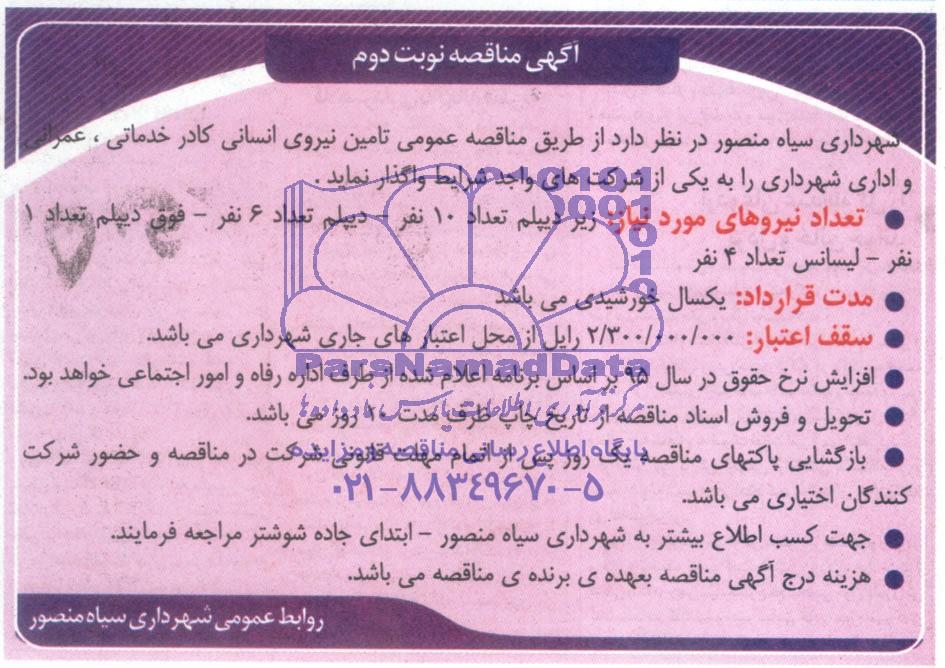 آگهی مناقصه نوبت دوم
شهرداری سیاه منصور در نظر دارد از طریق مناقصه عمومی تامین نیروی انسانی کادر خدماتی ، عمرانی
و اداری شهرداری را به یکی از شرکت های واجد شرایط واگذار نماید .
● تعداد نیروهای مورد نیاز: زیر دیپلم تعداد ۱۰ نفر – دیپلم تعداد ۶ نفر – فوق دیپلم تعداد ۱
نفر – لیسانس تعداد ۴ نفر
● مدت قرارداد: یکسال خورشیدی می باشد
● سقف اعتبار: ۲/۳۰۰/۰۰۰/۰۰۰ رایل از محل اعتبار های جاری شهرداری می باشد.
ParsNamadData
● افزایش نرخ حقوق در سال ۹۵ بر اساس برنامه اعلام شده از طرف اداره رفاه و امور اجتماعی خواهد بود.
مرکز فرآوری اطلاعات پارس نماد داده ها
● تحویل و فروش اسناد مناقصه از تاریخ چاپ ظرف مدت ۱۰ روز می باشد.
پایگاه اطلاع رسانی مناقصه و مزایده
● بازگشایی پاکتهای مناقصه یک روز پس از اتمام مهلت قانونی شرکت در مناقصه و حضور شرکت
۰۲۱-۸۸۳۴۹۶۷۰-۵
کنندگان اختیاری می باشد.
● جهت کسب اطلاع بیشتر به شهرداری سیاه منصور – ابتدای جاده شوشتر مراجعه فرمایند.
● هزینه درج آگهی مناقصه بعهده ی برنده ی مناقصه می باشد.
روابط عمومی شهرداری سیاه منصور